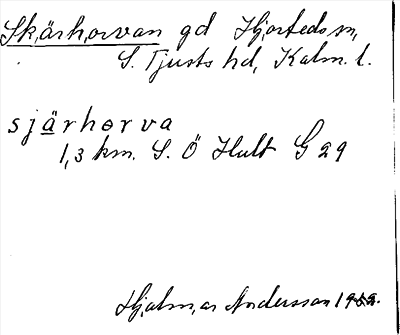 Skärhorvan gd Hjorteds sn,
S. Tjusts hd, Kalm. l.
sjärhorva
1,3 km. S. Ö Hult G 29
Hjalmar Andersson